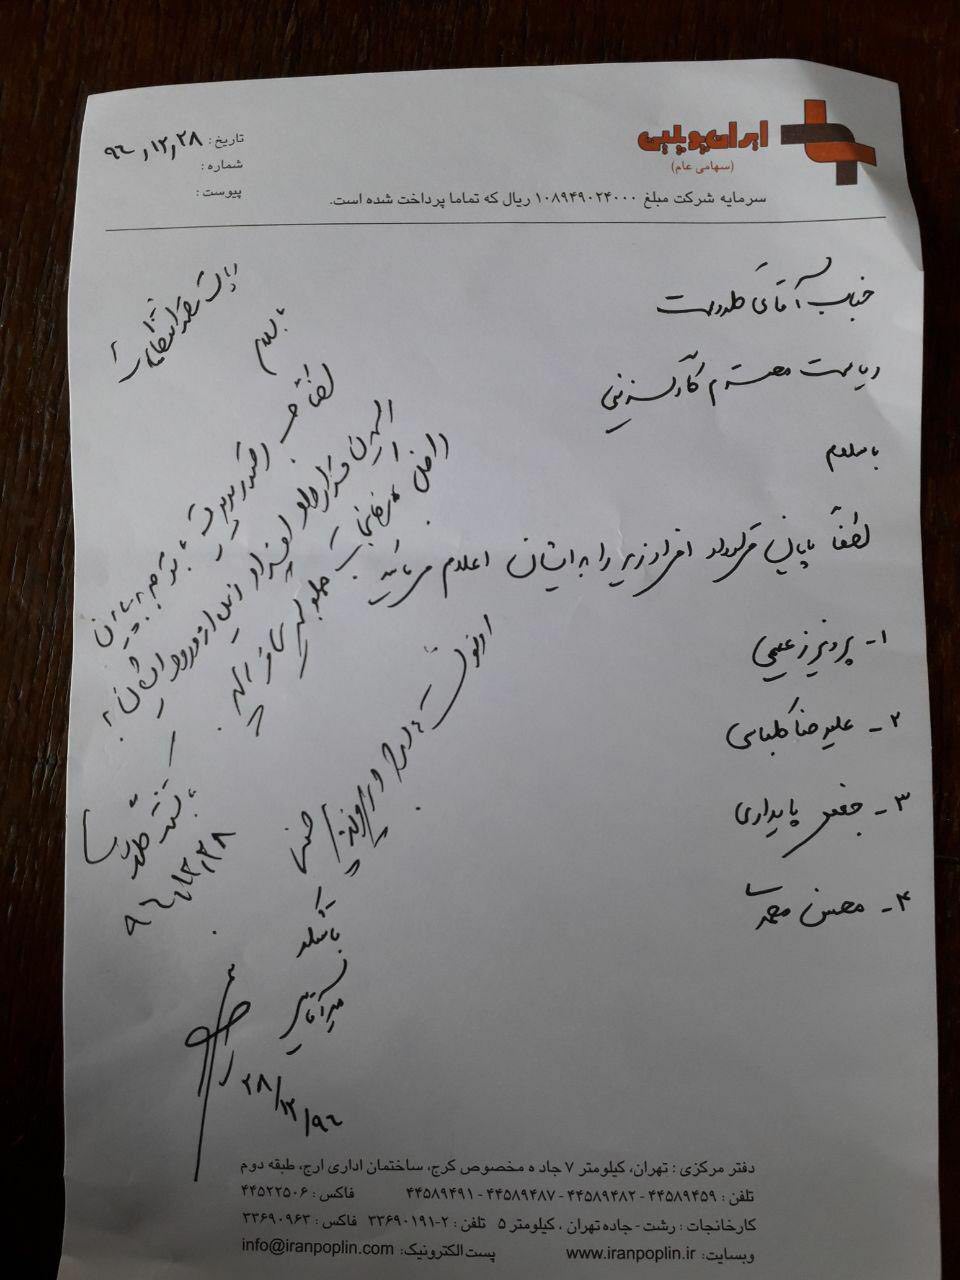 ایران پوپلین
(سهامی عام)
تاریخ : ۹۶,۱۲,۲۸
شماره :
پیوست :
سرمایه شرکت مبلغ ۱۰۸۹۴۹۰۲۴۰۰۰ ریال که تماما پرداخت شده است.
جناب آقای
ریاست محترم کارگزینی
با سلام
لطفاً پایان قرارداد افراد زیر را به ایشان اعلام می‌نمایید
۱- پرویز زعیمی
۲- علیرضا کلباسی
۳- جعفر پایداری
۴- محسن محمدی
ریاست انتظامات
با سلام
لطفاً حسب مدیریت با توجه به پایان
قرارداد افراد از ورود ایشان به
داخل کارخانجات جلوگیری
با تشکر
۹۶,۱۲,۲۸
با تشکر
۲۸/۱۲/۹۶
دفتر مرکزی : تهران، کیلومتر ۷ جاده مخصوص کرج، ساختمان اداری ارج، طبقه دوم
تلفن : ۴۴۵۸۹۴۵۹ - ۴۴۵۸۹۴۸۲ - ۴۴۵۸۹۴۸۷ - ۴۴۵۸۹۴۹۱ فاکس : ۴۴۵۲۲۵۰۶
کارخانجات : رشت - جاده تهران ، کیلومتر ۵ تلفن : ۲-۳۳۶۹۰۱۹۱ فاکس : ۳۳۶۹۰۹۶۳
وبسایت: www.iranpoplin.ir پست الکترونیک: info@iranpoplin.com